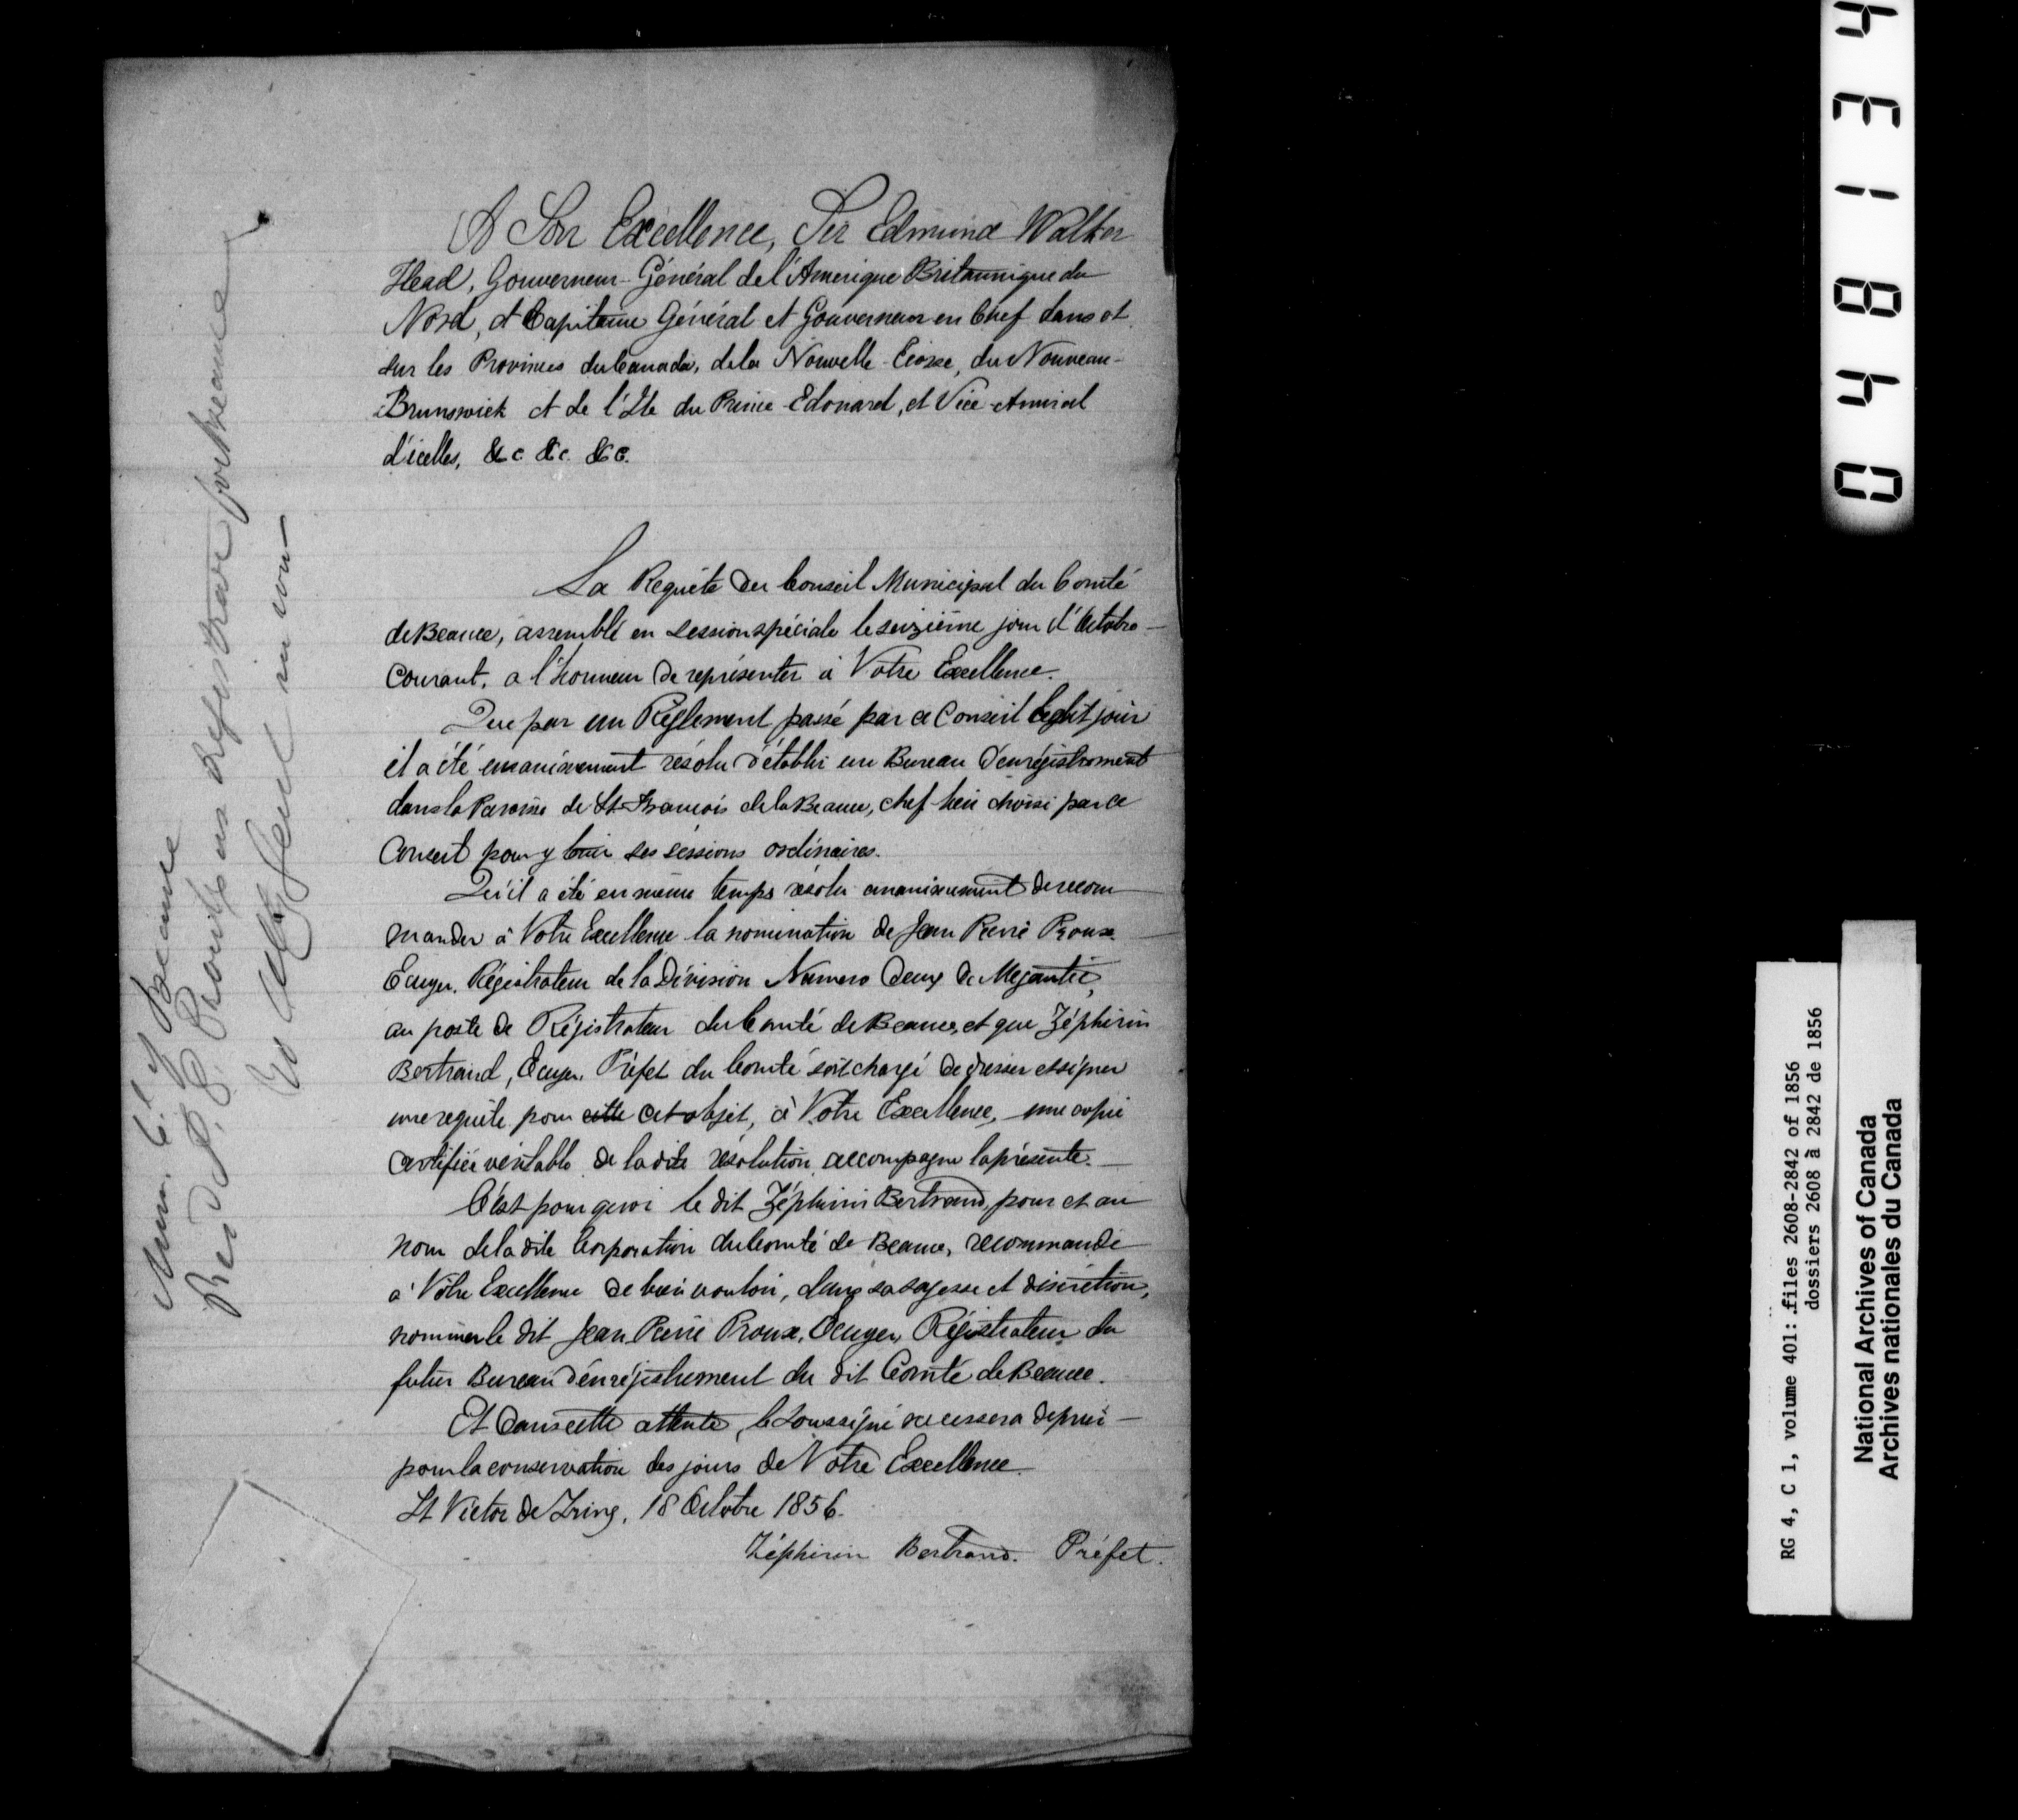 A Son Excellence, Sir Edmund Walker
Head, Gouverneur-Général de l'Amerique Britannique du
Nord, et Capitaine Général et Gouverneur en Chef dans et
sur les Provinces du Canada, de la Nouvelle-Ecosse, du Nouveau-
Brunswick et de l'Ile du Prince-Edouard, et Vice-Amiral
d'icelles, &c &c. &c.
La Requête du Conseil Municipal du Comté
de Beauce, assemblé en session spéciale le seizième jour d'Octobre
Courant, a l'honneur de représenter à Votre Excellence.
Que par un Règlement passé par ce Conseil le dit jour
il a été unanimement résolu d'établir un Bureau d'enrégistrement
dans la Paroisse de St. François de la Beauce, chef-lieu choisi par ce
Conseil pour y tenir ses sessions ordinaires.
Qu'il a été en même temps résolu unanimement de recom
mander à Votre Excellence la nomination de Jean Pierre Proulx
Ecuyer, Régistrateur de la Division Numero Deux de Megantic,
au poste de Régistrateur du Comté de Beauce, et que Zéphirin
Bertrand, Ecuyer, Préfet du Comté soit chargé de dresser et signer
une requête pour cette cet objet, à Votre Excellence, une copie
certifiée véritable de la dite résolution accompagne la présente.
C'est pourquoi le dit Zéphirin Bertrand, pour et au
nom de la dite Corporation du Comté de Beauce, recommande
à Votre Excellence de bien vouloir, dans sa sagesse et discrétion,
nommer le dit Jean Pierre Proulx, Ecuyer, Régistrateur du
futur Bureau d'énrégistrement du dit Comté de Beauce.
Et dans cette attente, le Soussigné ne cessera de prier
pour la conservation des jours de Votre Excellence.
St Victor de Tring, 18 Octobre 1856.
Zéphirin Bertrand. Préfet.
Mun. Cl. of Beauce
Recd. J. P. Proulx as Registrar for Beauce
048134
RG 4, C 1, volume 401: files 2608-2842 of 1856
dossiers 2608 à 2842 de 1856
National Archives of Canada
Archives nationales du Canada